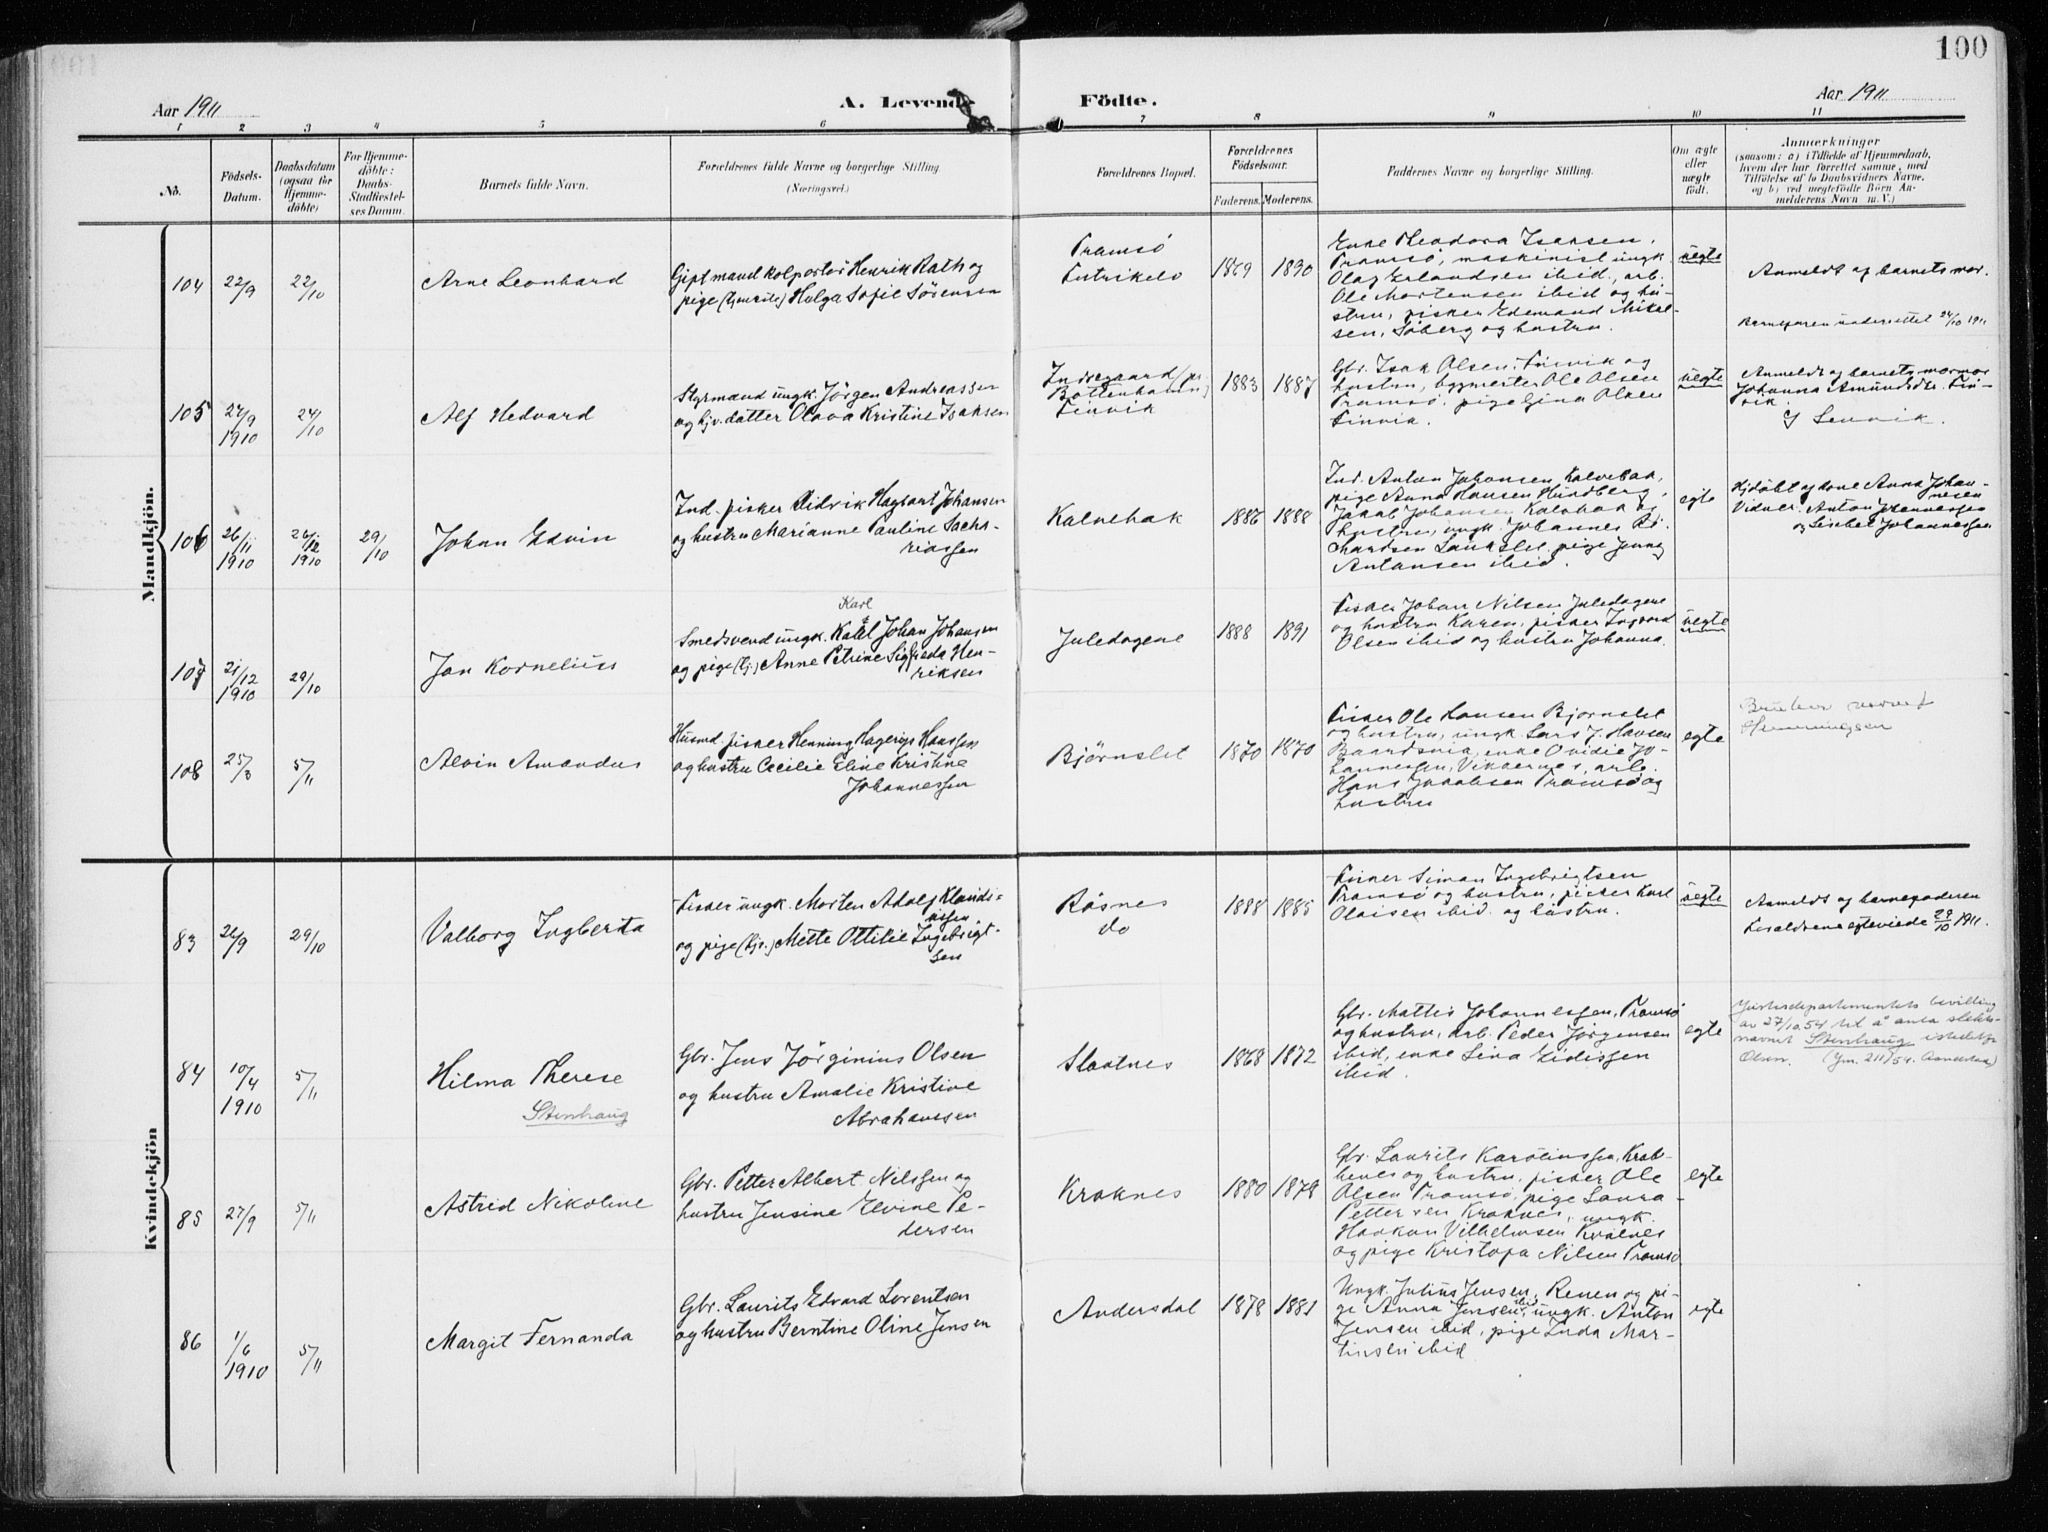 100
Aar 1911
A. Levende Födte.
Aar 1911
1 2 3 4 5 6 7 8 9 10 11
No.
Födsels-
Datum.
Daabsdatum
(ogsaa for
Hjemme-
döbte)
For Hjemme-
döbte:
Daabs-
Stadfæstel-
ses Datum.
Barnets fulde Navn.
Forældrenes fulde Navne og borgerlige Stilling.
(Næringsvei.)
Forældrenes Bopæl.
Forældrenes
Födselsaar.
Faderens. Moderens.
Faddernes Navne og borgerlige Stilling.
Om ægte
eller
uægte
født.
Anmærkninger
(saasom: a) i Tilfælde af Hjemmedaab,
hvem der har forrettet samme, med
Tilföielse af to Daabsvidners Navne,
og b) ved uægtefödte Börn An-
melderens Navn m. V.)
Mandkjön.
104 22/9 22/10 Arne Leonhard
Gift mand kolportør Henrik Rath og
pige Helga Sofie Sørensen
Tromsø
1869 1890
Enke Theodora Isaksen,
Tromsø, maskinist ungk.
Olaf Erlandsen ibid, arb.
Ole Mortensen ibid og hu-
stru, fisker Edemand Mikal-
sen, Søberg og hustru.
uegte
Anmeldt af barnets mor.
Barnefaren underrettet 24/10 1911
105 27/9 1910 24/10 Alf Hedvard
Styrmand ungk. Jørgen Andreassen
og gjv. datter Olava Kristine Isaksen
Finvik
1883 1887
Gbr. Isak Olsen, Finvik og
hustru, bygmester Ole Olsen
Tromsø, pige Gina Olsen
Finvik.
uegte
Anmeldt og barnets mormor
Johanna Amundsdtr. Fin-
vik.
106 26/11 1910 26/12 1910 29/10 Johan Edvin
Ind. fisker Eidvik Hagbart Johansen
og hustru Marianne Pauline Sachs-
riassen
Kalvebak
1886 1888
Ind. Anton Johansen Kalvebak,
pige Anna Hansen Hundberg,
Jakob Johansen Kalvebak og
hustru, ungk. Johannes Ri-
chardsen Laukslet, pige Jenny
Antonsen ibid.
egte
Hjdøbt af kone Anna Johan-
nesen
Vidner: Anton Johannessen
og Lisebet Johannessen
107 21/12 1910 29/10 Jan Kornelius
Karl
Smedsvend ungk. Kalel Johan Johansen
og pige (hj.) Anne Petrine Sigfreda Hen-
riksen
Juledagene
1888 1891
Fisker Johan Nilsen Juledagene
og hustru Karen, fisker Ingvard
Olsen ibid og hustru Johanna.
uegte
108 25/3 5/11 Alvin Amandus
Husmd. fisker Henning Hagerup Hanssen
og hustru Cecilie Eline Kristine
Johannessen
Bjørnslet
1870 1870
Fisker Ole Hansen Bjørnslet
og hustru, ungk. Lars J. Hansen
Baardsvia, enke Ovidie Jo-
hannessen, Vikternes, arb.
Hans Jakobsen Tromsø og
hustru
egte
Bruker navnet
Henningsen
Kvindekjön
83 26/9 29/10 Valborg Ingberta
Fisker ungk. Morten Adolf Klaudi-
ussen,
og pige (hjv.) Mette Ottilie Ingebrigt-
sen
Røsnes
do
1888 1885
Fisker Simon Ingebrigtsen
Tromsø og hustru, fisker Karl
Olaisen ibid. og hustru.
uegte
Anmeldt og barnefaderen
Foreldrene egteviede 29/10 1911.
84 10/4 1910 5/11 Hilma Therese
Stenhaug
Gbr. Jens Jørginius Olsen
og hustru Amalie Kristine
Abrahamsen
Slaatnes
1868 1872
Gbr. Mattis Johannessen, Tromsø
og hustru, arb. Peder Jørgensen
ibid, enke Lina Eidissen
ibid.
egte
Justisdepartementets bevilling
av 27/10.54 til å anta slekts-
navnet Stenhaug istedetfor
Olsen.
85 27/9 5/11 Astrid Nikoline
Gbr. Petter Albert Nilssen og
hustru Jensine Elvine Pe-
dersen
Kraknes
1880 1878
Gbr. Laurits Karolinssen, Krak-
henes og hustru, fisker Ole
Olsen Tromsø, pige Laura
Pettersen Kraknes, ungk.
Haakon Vilhelmsen Kvalnes
og pige Kristofa Nilsen Tromsø
egte
86 1/6 1910 5/11 Margit Fernanda
Gbr. Laurits Edvard Lorentsen
og hustru Berntine Oline Jensen
Andersdal
1878 1881
Ungk. Julius Jensen, Renen og pi-
ge Anna Jensen ibid, ungk. Anton
Jensen ibid, pige Inda Mar-
tinsen ibid
egte